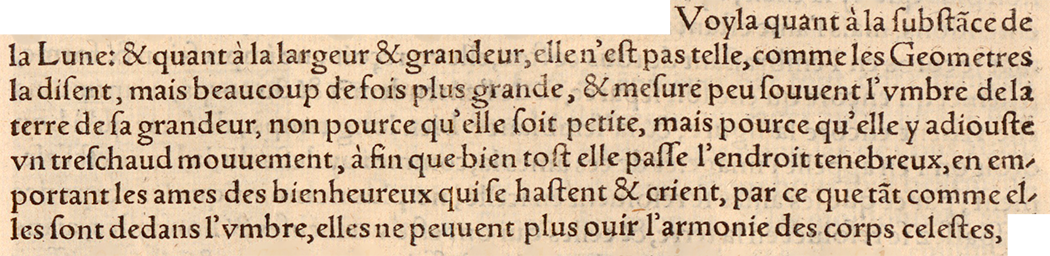 Voyla quant à la ſubſtãce de
la Lune: & quant à la largeur & grandeur, elle n'eſt pas telle, comme les Geometres
la diſent, mais beaucoup de fois plus grande, & meſure peu ſouuent l'vmbre de la
terre de ſa grandeur, non pource qu'elle ſoit petite, mais pource qu'elle y adiouſte
vn treſchaud mouuement, à fin que bien toſt elle paſſe l'endroit tenebreux, en em-
portant les ames des bienheureux qui ſe haſtent & crient, par ce que tãt comme el-
les ſont dedans l'vmbre, elles ne peuuent plus ouir l'armonie des corps celeſtes,